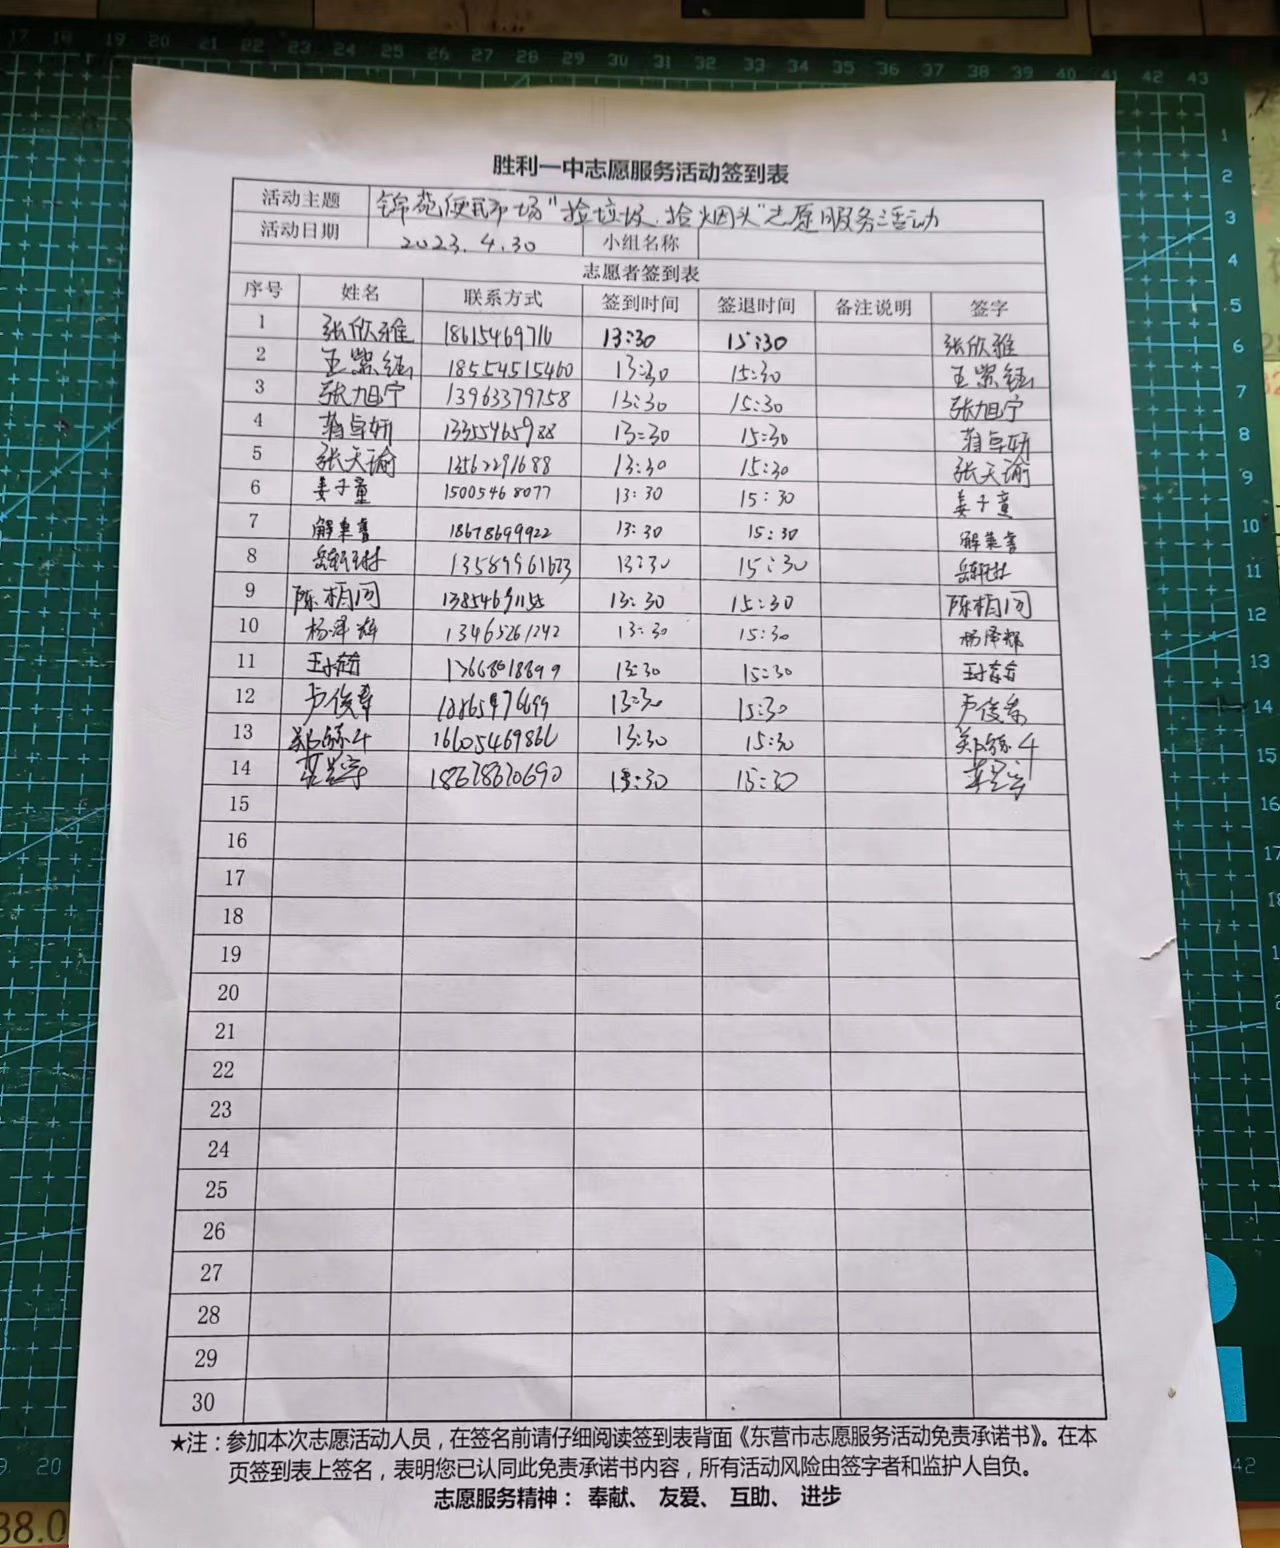 17 18 19 20 21 22 23 24 25 26 27 28 29 30 31 32 33 34 35 36 37 38 39 40 41 42 43
胜利一中志愿服务活动签到表
活动主题 锦苑便民市场"捡垃圾、捡烟头"志愿服务活动
活动日期 2023.4.30 小组名称
志愿者签到表
序号 姓名 联系方式 签到时间 签退时间 备注说明 签字
1 张欣雅 18615469716 13:30 15:30 张欣雅
2 王紫钰 18554515460 13:30 15:30 王紫钰
3 张旭宁 13963379758 13:30 15:30 张旭宁
4 卓妍 13355465988 13:30 15:30 卓妍
5 张天瑜 13562291688 13:30 15:30 张天瑜
6 姜子童 15005468077 13:30 15:30 姜子童
7 解集喜 18678699922 13:30 15:30 解集喜
8 岳 13589961673 13:30 15:30 岳
9 陈柏同 13854691155 13:30 15:30 陈柏同
10 杨泽辉 13465261242 13:30 15:30 杨泽辉
11 王 13:30 15:30 王
12 卢俊希 13:30 15:30 卢俊希
13 郑 16605469866 13:30 15:30 郑
14 18678620690 13:30 15:30
15
16
17
18
19
20
21
22
23
24
25
26
27
28
29
30
★注：参加本次志愿活动人员，在签名前请仔细阅读签到表背面《东营市志愿服务活动免责承诺书》。在本
页签到表上签名，表明您已认同此免责承诺书内容，所有活动风险由签字者和监护人自负。
志愿服务精神： 奉献、 友爱、 互助、 进步